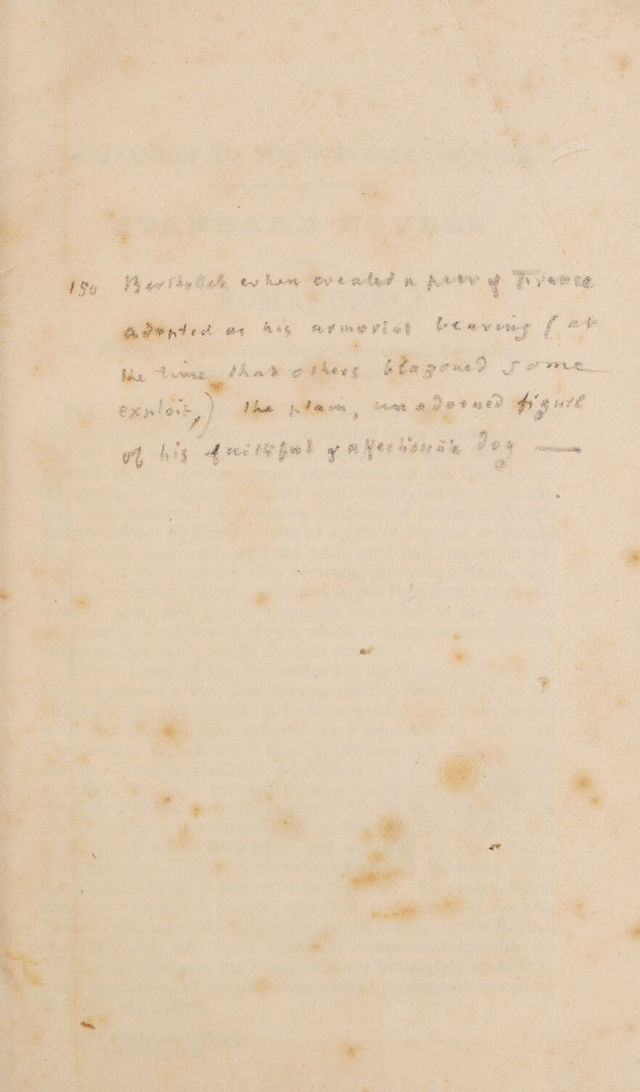 150 Berthollet when created a peer of France
adopted as his armorial bearing (at
the time that others blazoned some
exploit,) the plain, unadorned figure
of his faithful & affectionate dog —